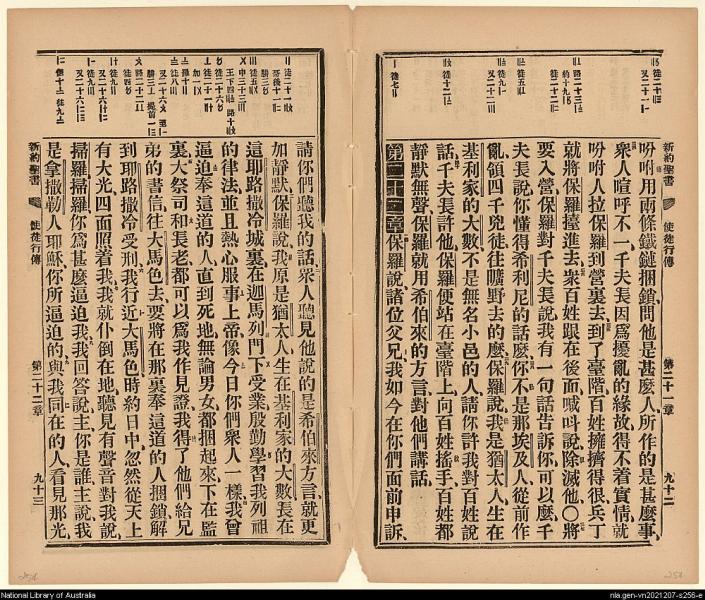 新約聖書
使徒行傳
第二十一章
九十二
吩咐用兩條鐵鏈捆鎖問他是甚麼人所作的是甚麼事
衆人喧呼不一千夫長因爲擾亂的緣故得不着實情就
吩咐人拉保羅到營裏去到了臺階百姓擁擠得很兵丁
就將保羅擡進去衆百姓跟在後面喊叫說除滅他〇將
要入營保羅對千夫長說我有一句話告訴你可以麼千
夫長說你懂得希利尼的話麼你不是那埃及人從前作
亂領四千兇徒往曠野去的麼保羅說我是猶太人生在
基利家的大數不是無名小邑的人請你許我對百姓說
話千夫長許他保羅便站在臺階上向百姓搖手百姓都
靜默無聲保羅就用希伯來的方言對他們講話
第二十二章保羅說諸位父兄我如今在你們面前申訴
請你們聽我的話衆人聽見他說的是希伯來方言就更
加靜默保羅說我原是猶太人生在基利家的大數長在
這耶路撒冷城裏在迦馬列門下受業殷勤學習我列祖
的律法並且熱心服事上帝像今日你們衆人一樣我曾
逼迫奉這道的人直到死地無論男女都捆起來下在監
裏大祭司和長老都可以爲我作見證我得了他們給兄
弟的書信往大馬色去要將在那裏奉這道的人捆鎖解
到耶路撒冷受刑我行近大馬色時約日中忽然從天上
有大光四面照着我我就仆倒在地聽見有聲音對我說
掃羅掃羅你爲甚麼逼迫我我回答說主你是誰主說我
是拿撒勒人耶穌你所逼迫的與我同在的人看見那光
新約聖書
使徒行傳
第二十二章
九十三
National Library of Australia
nla.gen-vn2021207-s256-e